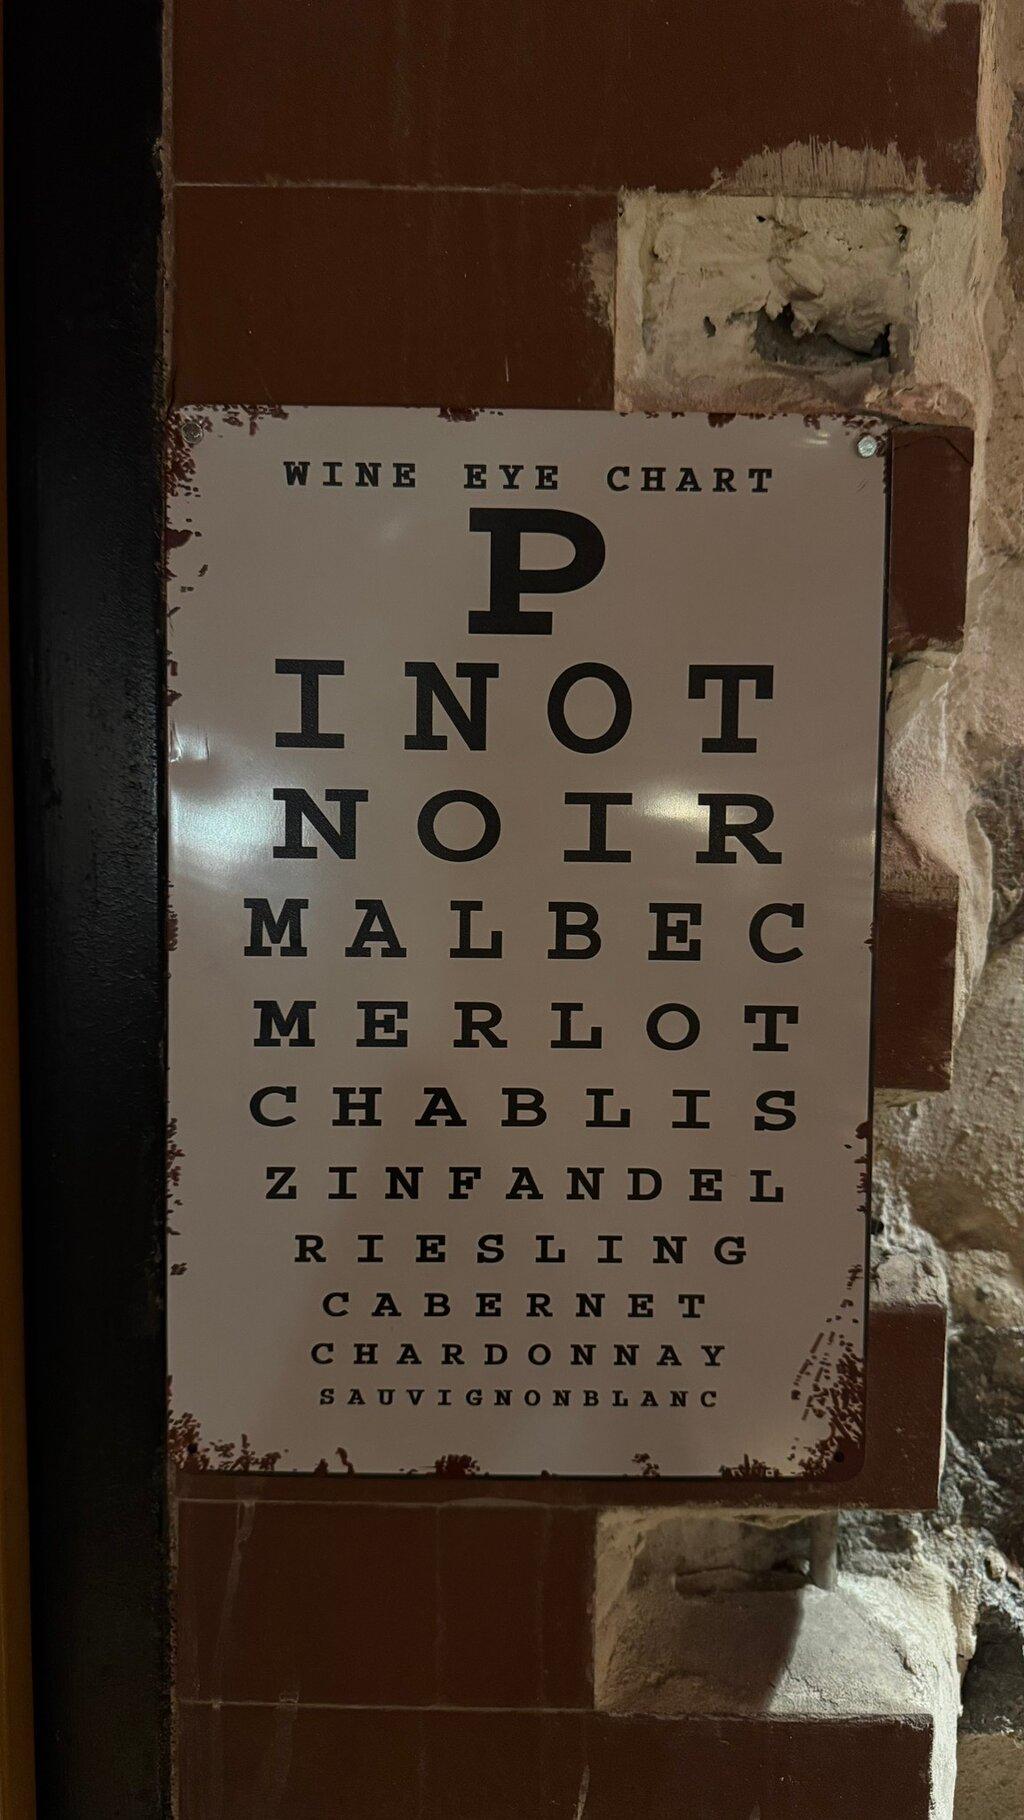 WINE EYE CHART
P
INOT
NOIR
MALBEC
MERLOT
CHABLIS
ZINFANDEL
RIESLING
CABERNET
CHARDONNAY
SAUVIGNONBLANC